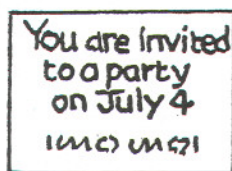 You are invited
to a party
on July 4